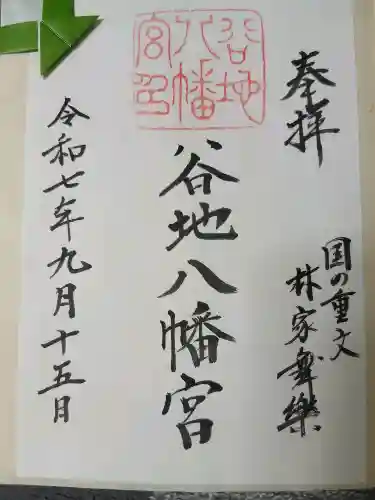 奉拝
国の重文
林家舞楽
谷地八幡宮
谷地
八幡
宮印
令和七年九月十五日